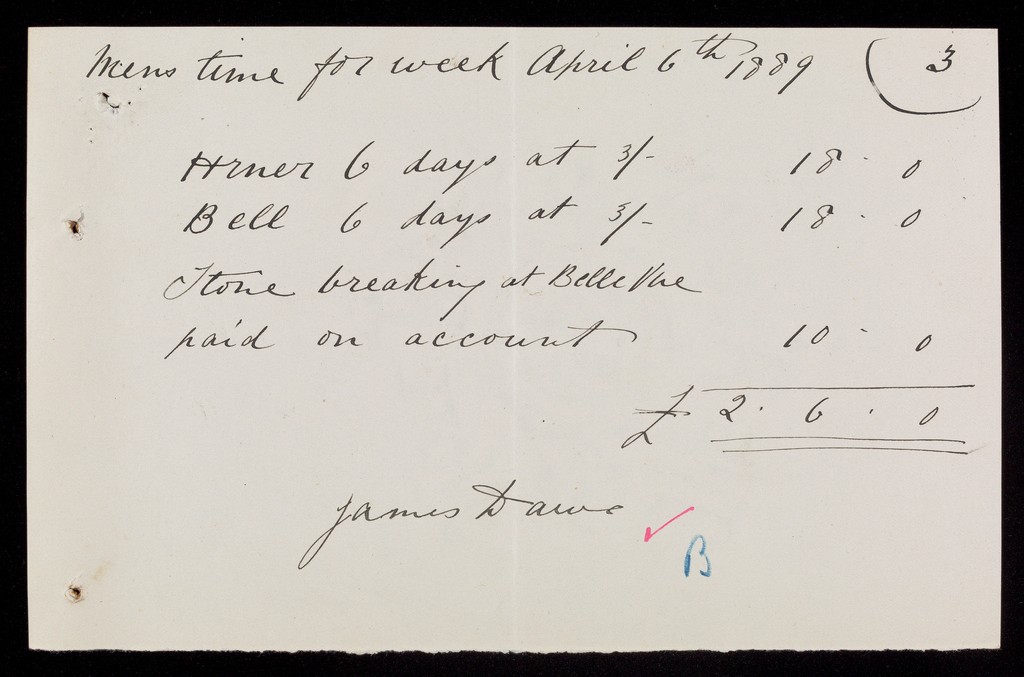 Mens time for week April 6th 1889 3
Hrner 6 days at 3/- 18 . 0
Bell 6 days at 3/- 18 . 0
Stone breaking at Belle Vue
paid on account 10 - 0
£ 2 . 6 . 0
James Dawe
B